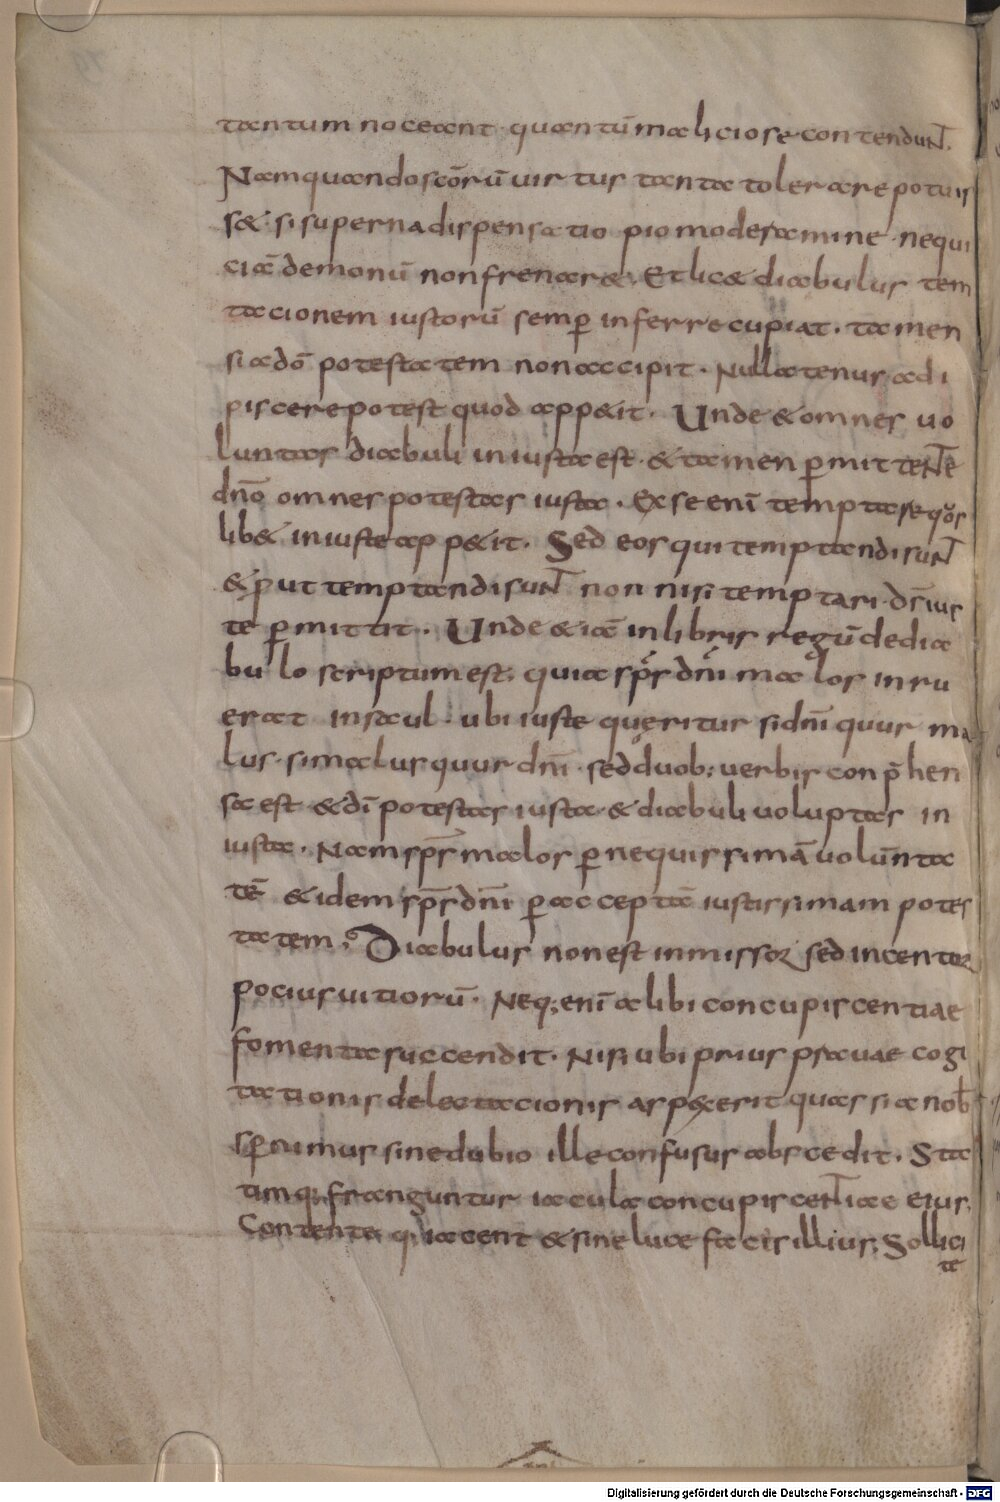 tantum noceant · quantū maliciose contendunt.
Nam quando scōrū uirtus tanta tolerare potuis
s& · si superna dispensatio pio moderamine · nequi
ciā demonū non frenar&. Et lic& diabulus tem
tacionem iustorū semp̄ inferre cupiat. tamen
si a dō potestatem non accipit. Nullatenus adi
piscere potest quod app&it. Unde & omnes uo
luntas diabuli iniusta est · & tamen p̄mittentē
dnō omnes potestas iusta. Ex se enī temptare quos
lib& iniuste app&it. Sed eos qui temptandi sunt
& p̄ut temptandi sunt non nisi temptari · ds̄ ius
te p̄mittit. Unde & iā in libris regū de dia
bulo scriptum est; quia sps̄ dnī malos inru
erat in saul · ubi iuste queritur si dnī quur ma
lus · si malus quur dnī · sed duob; uerbis conp̄hen
sa est & dī potestas iusta · & diabuli uoluptas in
iusta. Nam sps̄ malos p̄ nequissimā uolūnta
tē & idem sps̄ dnī p̄ acceptā iustissimam potes
tatem; Diabulus non est inmissor sed incentor
pocius uitiorū. Neq; enī alibi concupiscentiae
fomenta succendit. Nisi ubi prius prauae cogi
tationis delectacionis aspexerit quas si a nob̄
sp̄nimus sine dubio ille confusus abscedit. Sta
timq; franguntur iacula concupiscentiae eius.
Contenta q; iacent & sine luce facis illius; Sollici
te
Digitalisierung gefördert durch die Deutsche Forschungsgemeinschaft - DFG